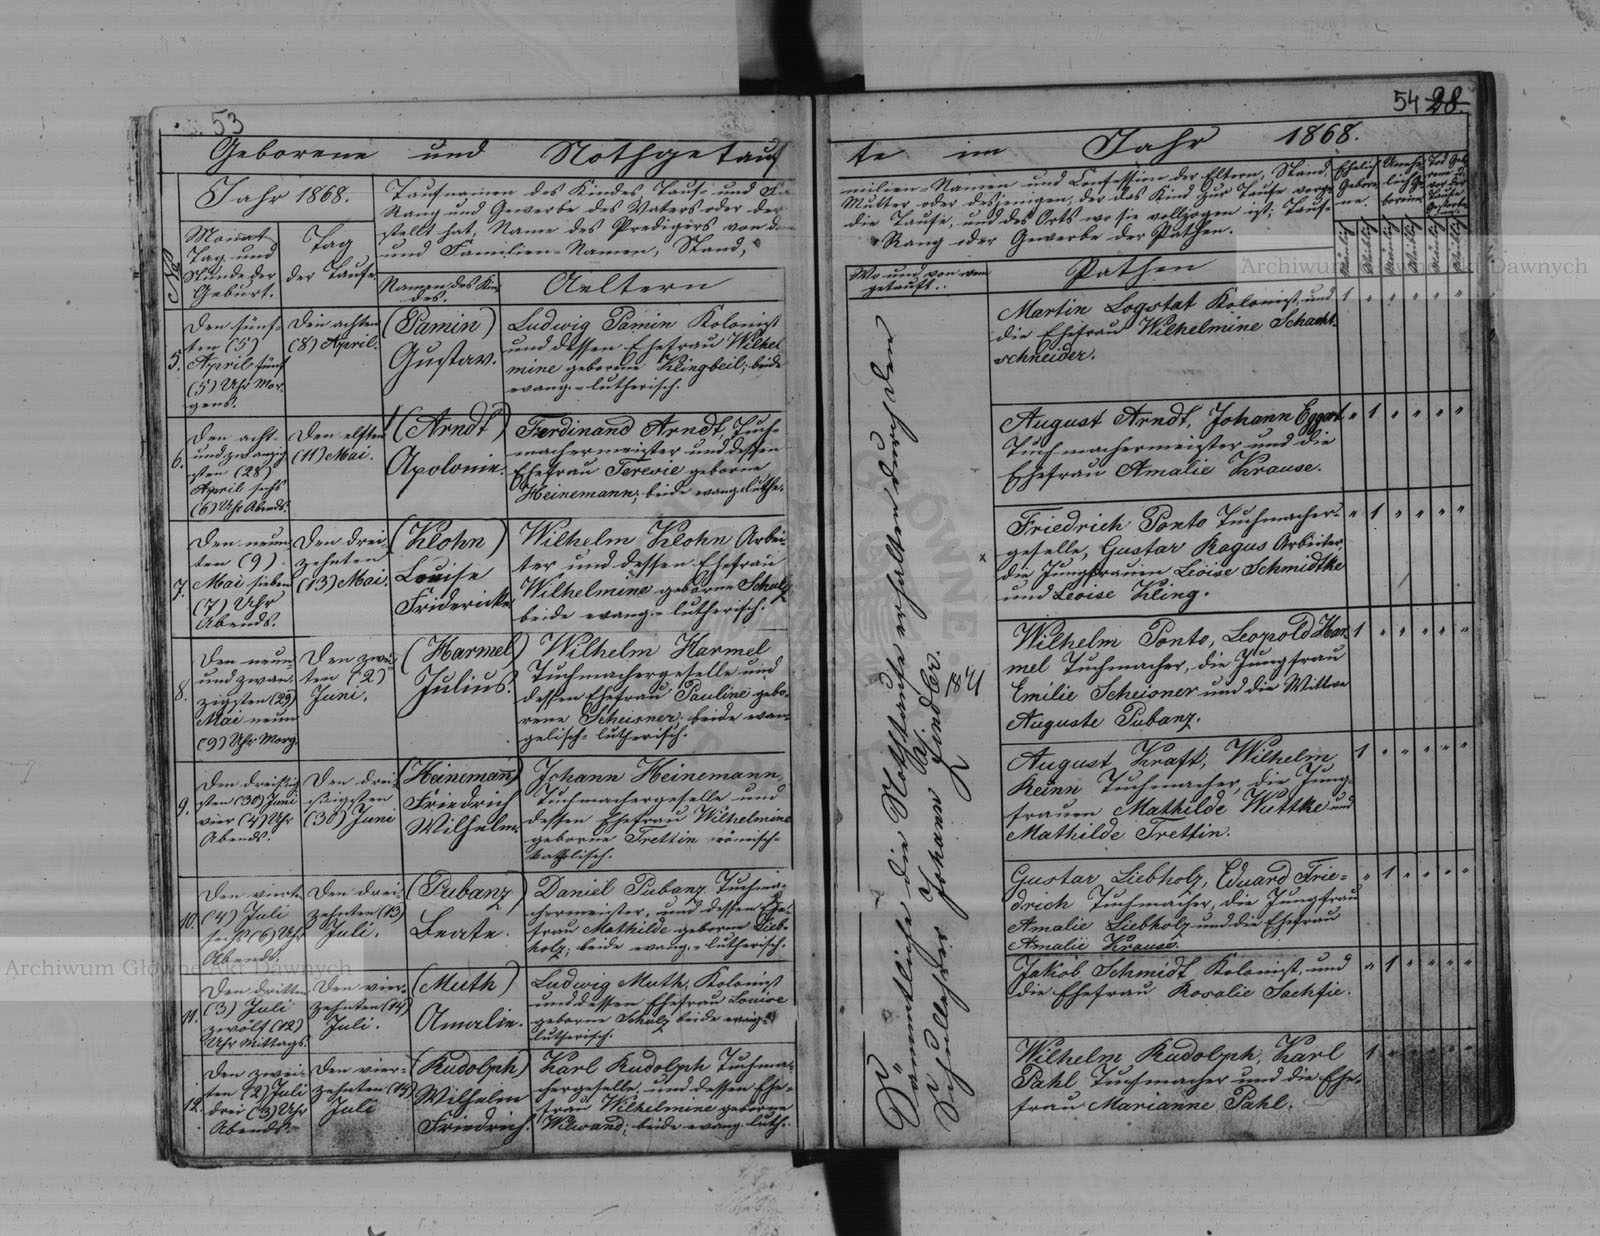 53
Geborene und Nothgetauf
Jahr 1868.
Taufnamen des Kindes, Tauf- und Fa
Rang und Gewerbe des Vaters oder der
stellt hat, Name des Predigers von dem
und Familien-Namen, Stand,
No
Monat
Tag und
Stunde der
Geburt.
Tag
der Taufe.
Namen des Kin
des.
Aeltern
5.
Den fünf-
ten (5)
April fünf
(5) Uhr Mor-
gens.
Den achten
(8) April.
(Pamin)
Gustav.
Ludwig Pamin Kolonist
und dessen Ehefrau Wilhel
mine geborene Klingbeil; beide
evang.-lutherisch.
6.
Den acht-
und zwanzig
sten (28)
April sechs
(6) Uhr Abends.
Den elften
(11) Mai.
(Arndt)
Apolonie.
Ferdinand Arndt, Tuch-
machermeister und dessen
Ehefrau Teresie geborne
Heinemann; beide evang. luthe.
7.
Den neun
ten (9)
Mai sieben
(7) Uhr
Abends.
Den drei-
zehnten
(13) Mai.
(Klohn)
Louise
Fridericke
Wilhelm Klohn Arbei-
ter und dessen Ehefrau
Wilhelmine geborne Schulz
beide evang.-lutherisch.
8.
Den neun
und zwan-
zigsten (29)
Mai neun
(9) Uhr Morg.
Den zwei-
ten (2)
Juni.
(Harmel)
Julius.
Wilhelm Harmel
Tuchmachergeselle und
dessen Ehefrau Pauline gebo-
rene Scheisner; beide evan-
gelisch-lutherisch.
9.
Den dreißig
sten (30) Juni
vier (4) Uhr
Abends.
Den drei-
ßigsten
(30) Juni
(Heinemañ)
Friedrich
Wilhelm.
Johann Heinemann,
Tuchmachergeselle und
dessen Ehefrau Wilhelmine
geborne Trettin römisch-
katholisch.
10.
Den vierte
(4) Juli
sechs (6) Uhr
Abends.
Den drei-
zehnten (13)
Juli.
(Pubanz)
Beate.
Daniel Pubanz Tuchma-
chermeister, und dessen Ehe-
frau Mathilde geborne Lieb-
holz; beide evang.-lutherisch.
11.
Den dritten
(3) Juli
zwölf (12)
Uhr Mittags.
Den vier-
zehnten (14)
Juli.
(Muth)
Amalie.
Ludwig Muth, Kolonist
und dessen Ehefrau Louise
geborne Schulz beide evang-
lutherisch.
12.
Den zwei-
ten (2) Juli
drei (3) Uhr
Abends.
Den vier-
zehnten (14)
Juli
(Rudolph)
Wilhelm
Friedrich.
Karl Rudolph Tuchma-
chergeselle, und dessen Ehe-
frau Wilhelmine geborne
Wiewand; beide evang. luth.
54 28.
te im Jahr 1868.
milien-Namen und Confession der Eltern, Stand,
Mutter oder desjenigen, der das Kind zur Taufe vorge
die Taufe, und des Orts wo sie vollzogen ist; Tauf-
Rang oder Gewerbe der Pathen.
Ehelig
Gebore-
ne.
Unehe
lich Ge-
borene
Tod Geb
orene u.
vor der
Taufe
Gestorbe
Mänlig
Weiblig
Mänlig
Weiblig
Mänlig
Weiblig
Wo und von wem
getauft.
Pathen
Sämmtliche die Nothtaufe erhalten durch den
Schullehrer Johann A. Lindler.
Martin Logstat Kolonist, und
die Ehefrau Wilhelmine Schacht-
schneider.
1 " " " " "
August Arndt, Johann Eggert
Tuchmachermeister und die
Ehefrau Amalie Krause.
" 1 " " " "
Friedrich Ponto Tuchmacher-
geselle, Gustav Ragus Arbeiter,
die Jungfrauen Leoise Schmidtke
und Leoise Kling.
" 1 " " " "
Wilhelm Ponto, Leopold Har-
mel Tuchmacher, die Jungfrau
Emilie Scheisner und die Wittwe
Auguste Pubanz.
1 " " " " "
August Kraft, Wilhelm
Reinn Tuchmacher, die Jung-
frauen Mathilde Wuttke und
Mathilde Trettin.
1 " " " " "
Gustav Liebholz, Eduard Frie-
drich Tuchmacher, die Jungfrau
Amalie Liebholz und die Ehefrau
Amalie Krause.
" 1 " " " "
Jakob Schmidt Kolonist, und
die Ehefrau Rosalie Sachfie.
" 1 " " " "
Wilhelm Rudolph, Karl
Pahl Tuchmacher und die Ehe-
frau Marianne Pahl.
1 " " " " "
Archiwum Główne Akt Dawnych
Archiwum Główne Akt Dawnych